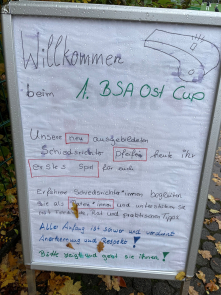 Willkommen
beim 1. BSA Ost Cup
Unsere neu ausgebildeten
Schiedsrichter pfeifen heute ihr
erstes Spiel für euch
Erfahrene Schiedsrichter*innen begleiten
sie als Paten*innen und unterstützen sie
mit Rat und praktischen Tipps
Aller Anfang ist schwer und verdient
Anerkennung und Respekt!
Bitte zeigt und gebt sie ihnen!